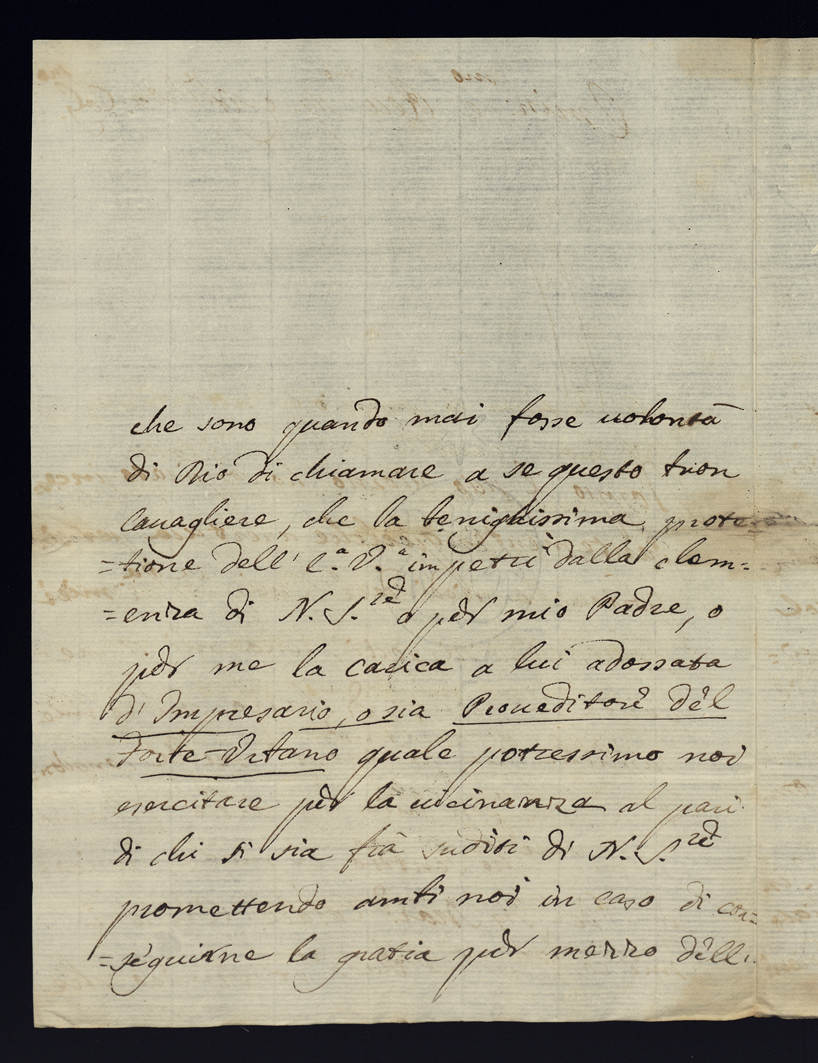 che sono quando mai fosse uolontà
di Dio di chiamare a se questo buon
Cauagliere, che la benignissima prote-
=tione dell' E.ª V.ª impetri dalla clem=
=enza di N. S.re o pèr mio Padre, o
pèr me la carica a lui adossata
d'Impresario, o sia Proueditorè dèl
Forte-Urbano quale potressimo noi
esercitare pèr la uicinanza al pari
di chi si sia frà sudditi di N. S.re
promettendo ambi noi in caso di con=
=sèguirne la gratia pèr mezzo dèll'